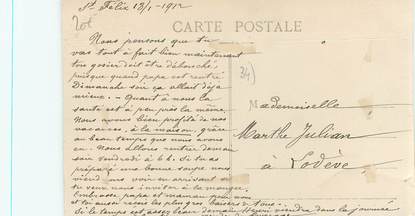 St Félix 13/1 - 1912
CARTE POSTALE
Nous pensons que tu
vas tout à fait bien maintenant
ton gosier doit être débouché,
puisque quand papa est rentré
Dimanche soir ça allait déjà
mieux. - Quant à nous la
santé est à peu près la même.
Nous avons bien profité de nos
vacances, à la maison, grâce
au beau temps que nous avons
eu. Nous allons rentrer demain
soir vendredi à 6 h. Si tu as
préparé une bonne soupe nous
viendrons voir en arrivant si
tu veux nous inviter à la manger.
Embrasse papa et maman pour nous
et toi aussi reçois les plus gros baisers de tous.
Si le temps est assez beau demain Henri viendra dans la journée
34
Mademoiselle
Marthe Julian
à Lodève